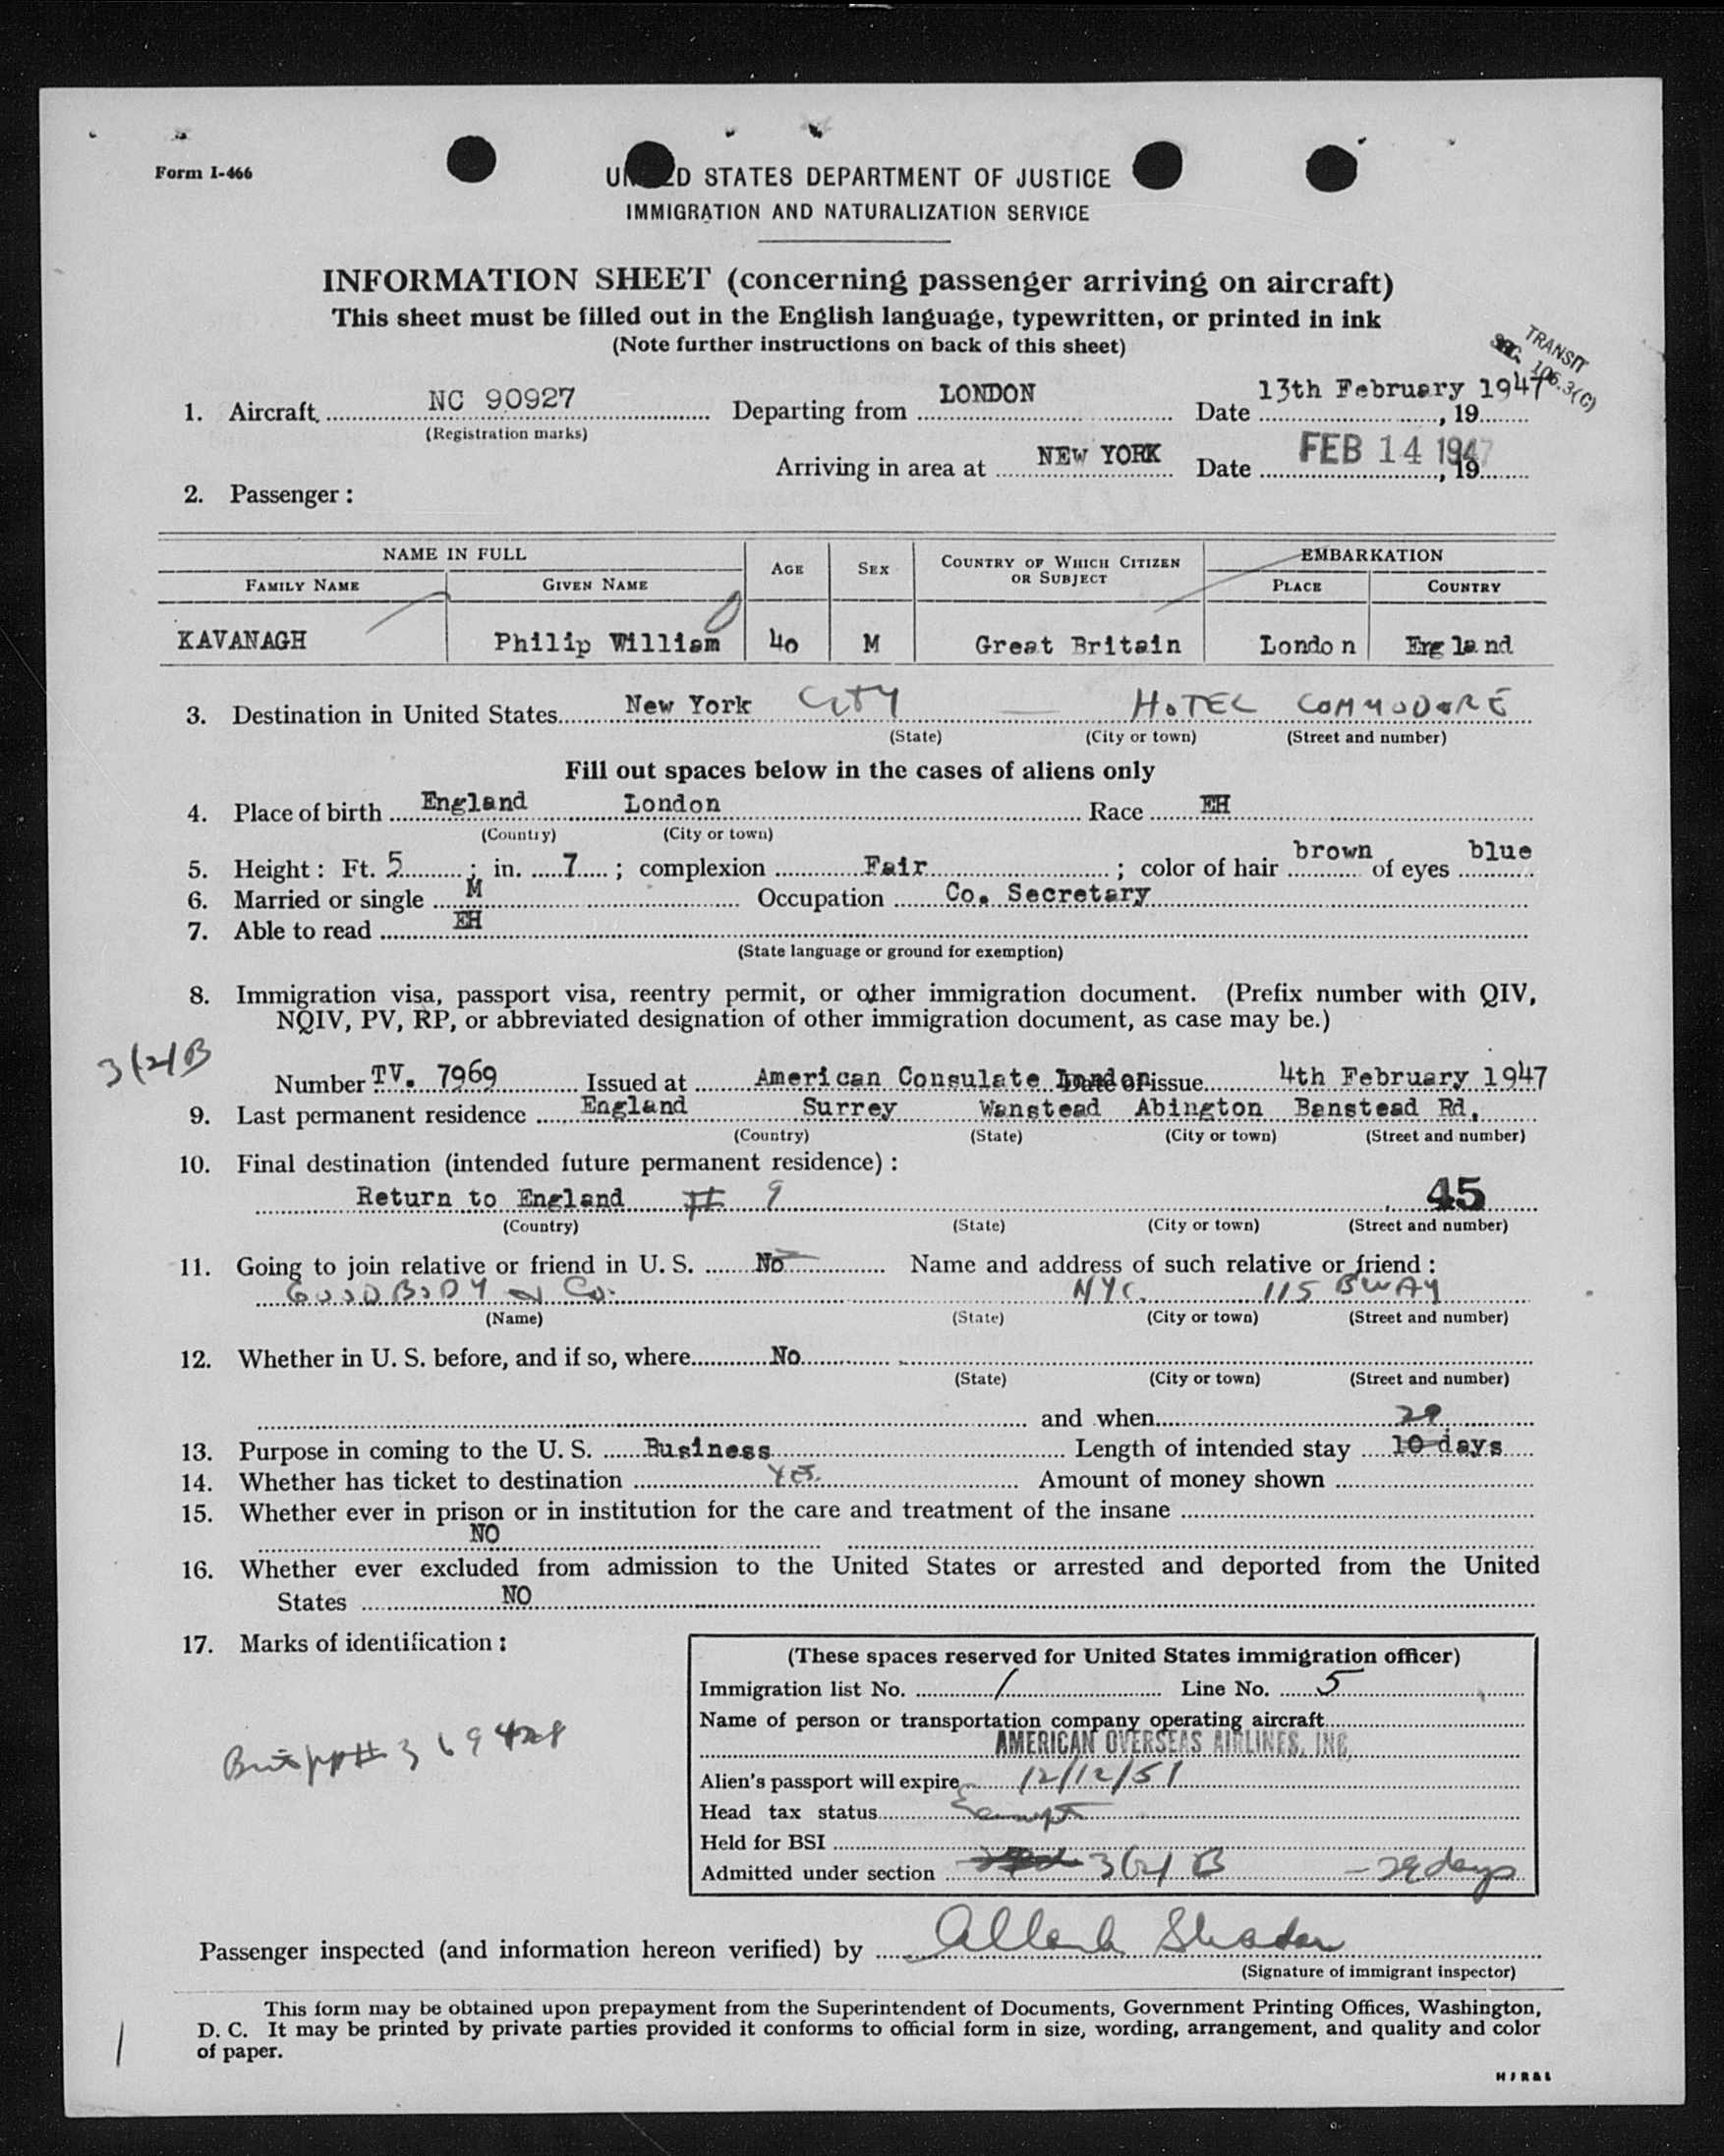 Form I-466
UNITED STATES DEPARTMENT OF JUSTICE
IMMIGRATION AND NATURALIZATION SERVICE
INFORMATION SHEET (concerning passenger arriving on aircraft)
This sheet must be filled out in the English language, typewritten, or printed in ink
(Note further instructions on back of this sheet)
TRANSIT
SEC. 106.3(C)
1. Aircraft NC 90927 Departing from LONDON Date 13th February 1947, 19
(Registration marks)
Arriving in area at NEW YORK Date FEB 14 1947, 19
2. Passenger:
NAME IN FULL AGE SEX COUNTRY OF WHICH CITIZEN OR SUBJECT EMBARKATION
FAMILY NAME GIVEN NAME PLACE COUNTRY
KAVANAGH Philip William 40 M Great Britain London England
3. Destination in United States New York CITY HOTEL COMMODORE
(State) (City or town) (Street and number)
Fill out spaces below in the cases of aliens only
4. Place of birth England London Race EH
(Country) (City or town)
5. Height: Ft. 5; in. 7; complexion Fair; color of hair brown of eyes blue
6. Married or single M Occupation Co. Secretary
7. Able to read EH
(State language or ground for exemption)
8. Immigration visa, passport visa, reentry permit, or other immigration document. (Prefix number with QIV,
NQIV, PV, RP, or abbreviated designation of other immigration document, as case may be.)
3(2)B
Number TV. 7969 Issued at American Consulate London Date of issue 4th February 1947
9. Last permanent residence England Surrey Wanstead Abington Banstead Rd.
(Country) (State) (City or town) (Street and number)
10. Final destination (intended future permanent residence):
Return to England # 9 45
(Country) (State) (City or town) (Street and number)
11. Going to join relative or friend in U. S. No Name and address of such relative or friend:
GOODBODY & Co. NYC. 115 BWAY
(Name) (State) (City or town) (Street and number)
12. Whether in U. S. before, and if so, where No
(State) (City or town) (Street and number)
and when
29
13. Purpose in coming to the U. S. Business Length of intended stay 10 days
14. Whether has ticket to destination YES. Amount of money shown
15. Whether ever in prison or in institution for the care and treatment of the insane
NO
16. Whether ever excluded from admission to the United States or arrested and deported from the United
States NO
17. Marks of identification:
(These spaces reserved for United States immigration officer)
Immigration list No. 1 Line No. 5
Name of person or transportation company operating aircraft
AMERICAN OVERSEAS AIRLINES, INC.
Brit pp# 369428
Alien's passport will expire 12/12/51
Head tax status Exempt
Held for BSI
Admitted under section 3(2)B - 29 days
Passenger inspected (and information hereon verified) by
(Signature of immigrant inspector)
This form may be obtained upon prepayment from the Superintendent of Documents, Government Printing Offices, Washington,
D. C. It may be printed by private parties provided it conforms to official form in size, wording, arrangement, and quality and color
of paper.